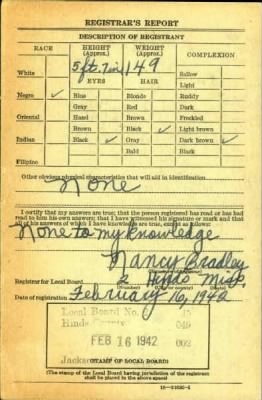 REGISTRAR'S REPORT
DESCRIPTION OF REGISTRANT
RACE HEIGHT (Approx.) WEIGHT (Approx.) COMPLEXION
White 5 ft. 7 in. 149 Sallow
EYES HAIR Light
Negro ✓ Blue Blonde Ruddy
Gray Red Dark
Oriental Hazel Brown Freckled
Brown Black ✓ Light brown
Indian Black ✓ Gray Dark brown ✓
Bald Black
Filipino
Other obvious physical characteristics that will aid in identification
None
I certify that my answers are true; that the person registered has read or has had read to him his own answers; that I have witnessed his signature or mark and that all of his answers of which I have knowledge are true, except as follows:
None to my knowledge
Nancy Bradley
Registrar for Local Board 2 Hinds Miss.
(Number) (City or county) (State)
Date of registration February 16, 1942
Local Board No. 15
Hinds 049
FEB 16 1942 002
STAMP OF LOCAL BOARD
(The stamp of the Local Board having jurisdiction of the registrant shall be placed in the above space)